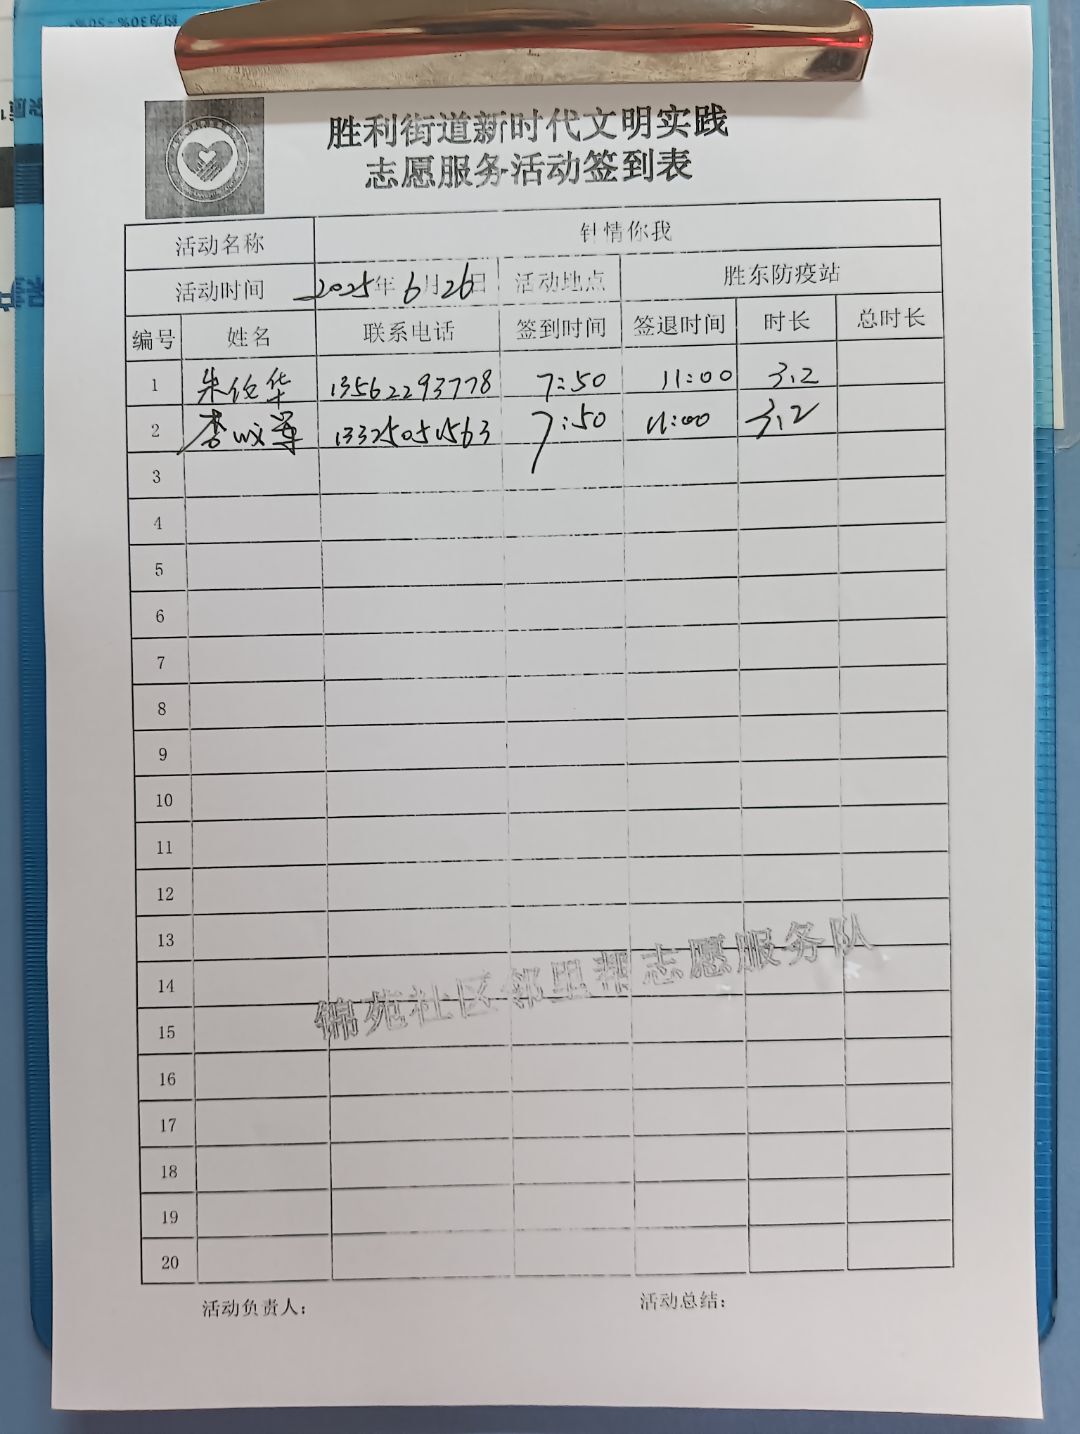 胜利街道新时代文明实践
志愿服务活动签到表
活动名称 针情你我
活动时间 2025年6月26日 活动地点 胜东防疫站
编号 姓名 联系电话 签到时间 签退时间 时长 总时长
1 朱 华 13562293778 7:50 11:00 3.2
2 李 7:50 11:00 3.2
3
4
5
6
7
8
9
10
11
12
13
14
15
16
17
18
19
20
锦苑社区邻里帮志愿服务队
活动负责人: 活动总结: